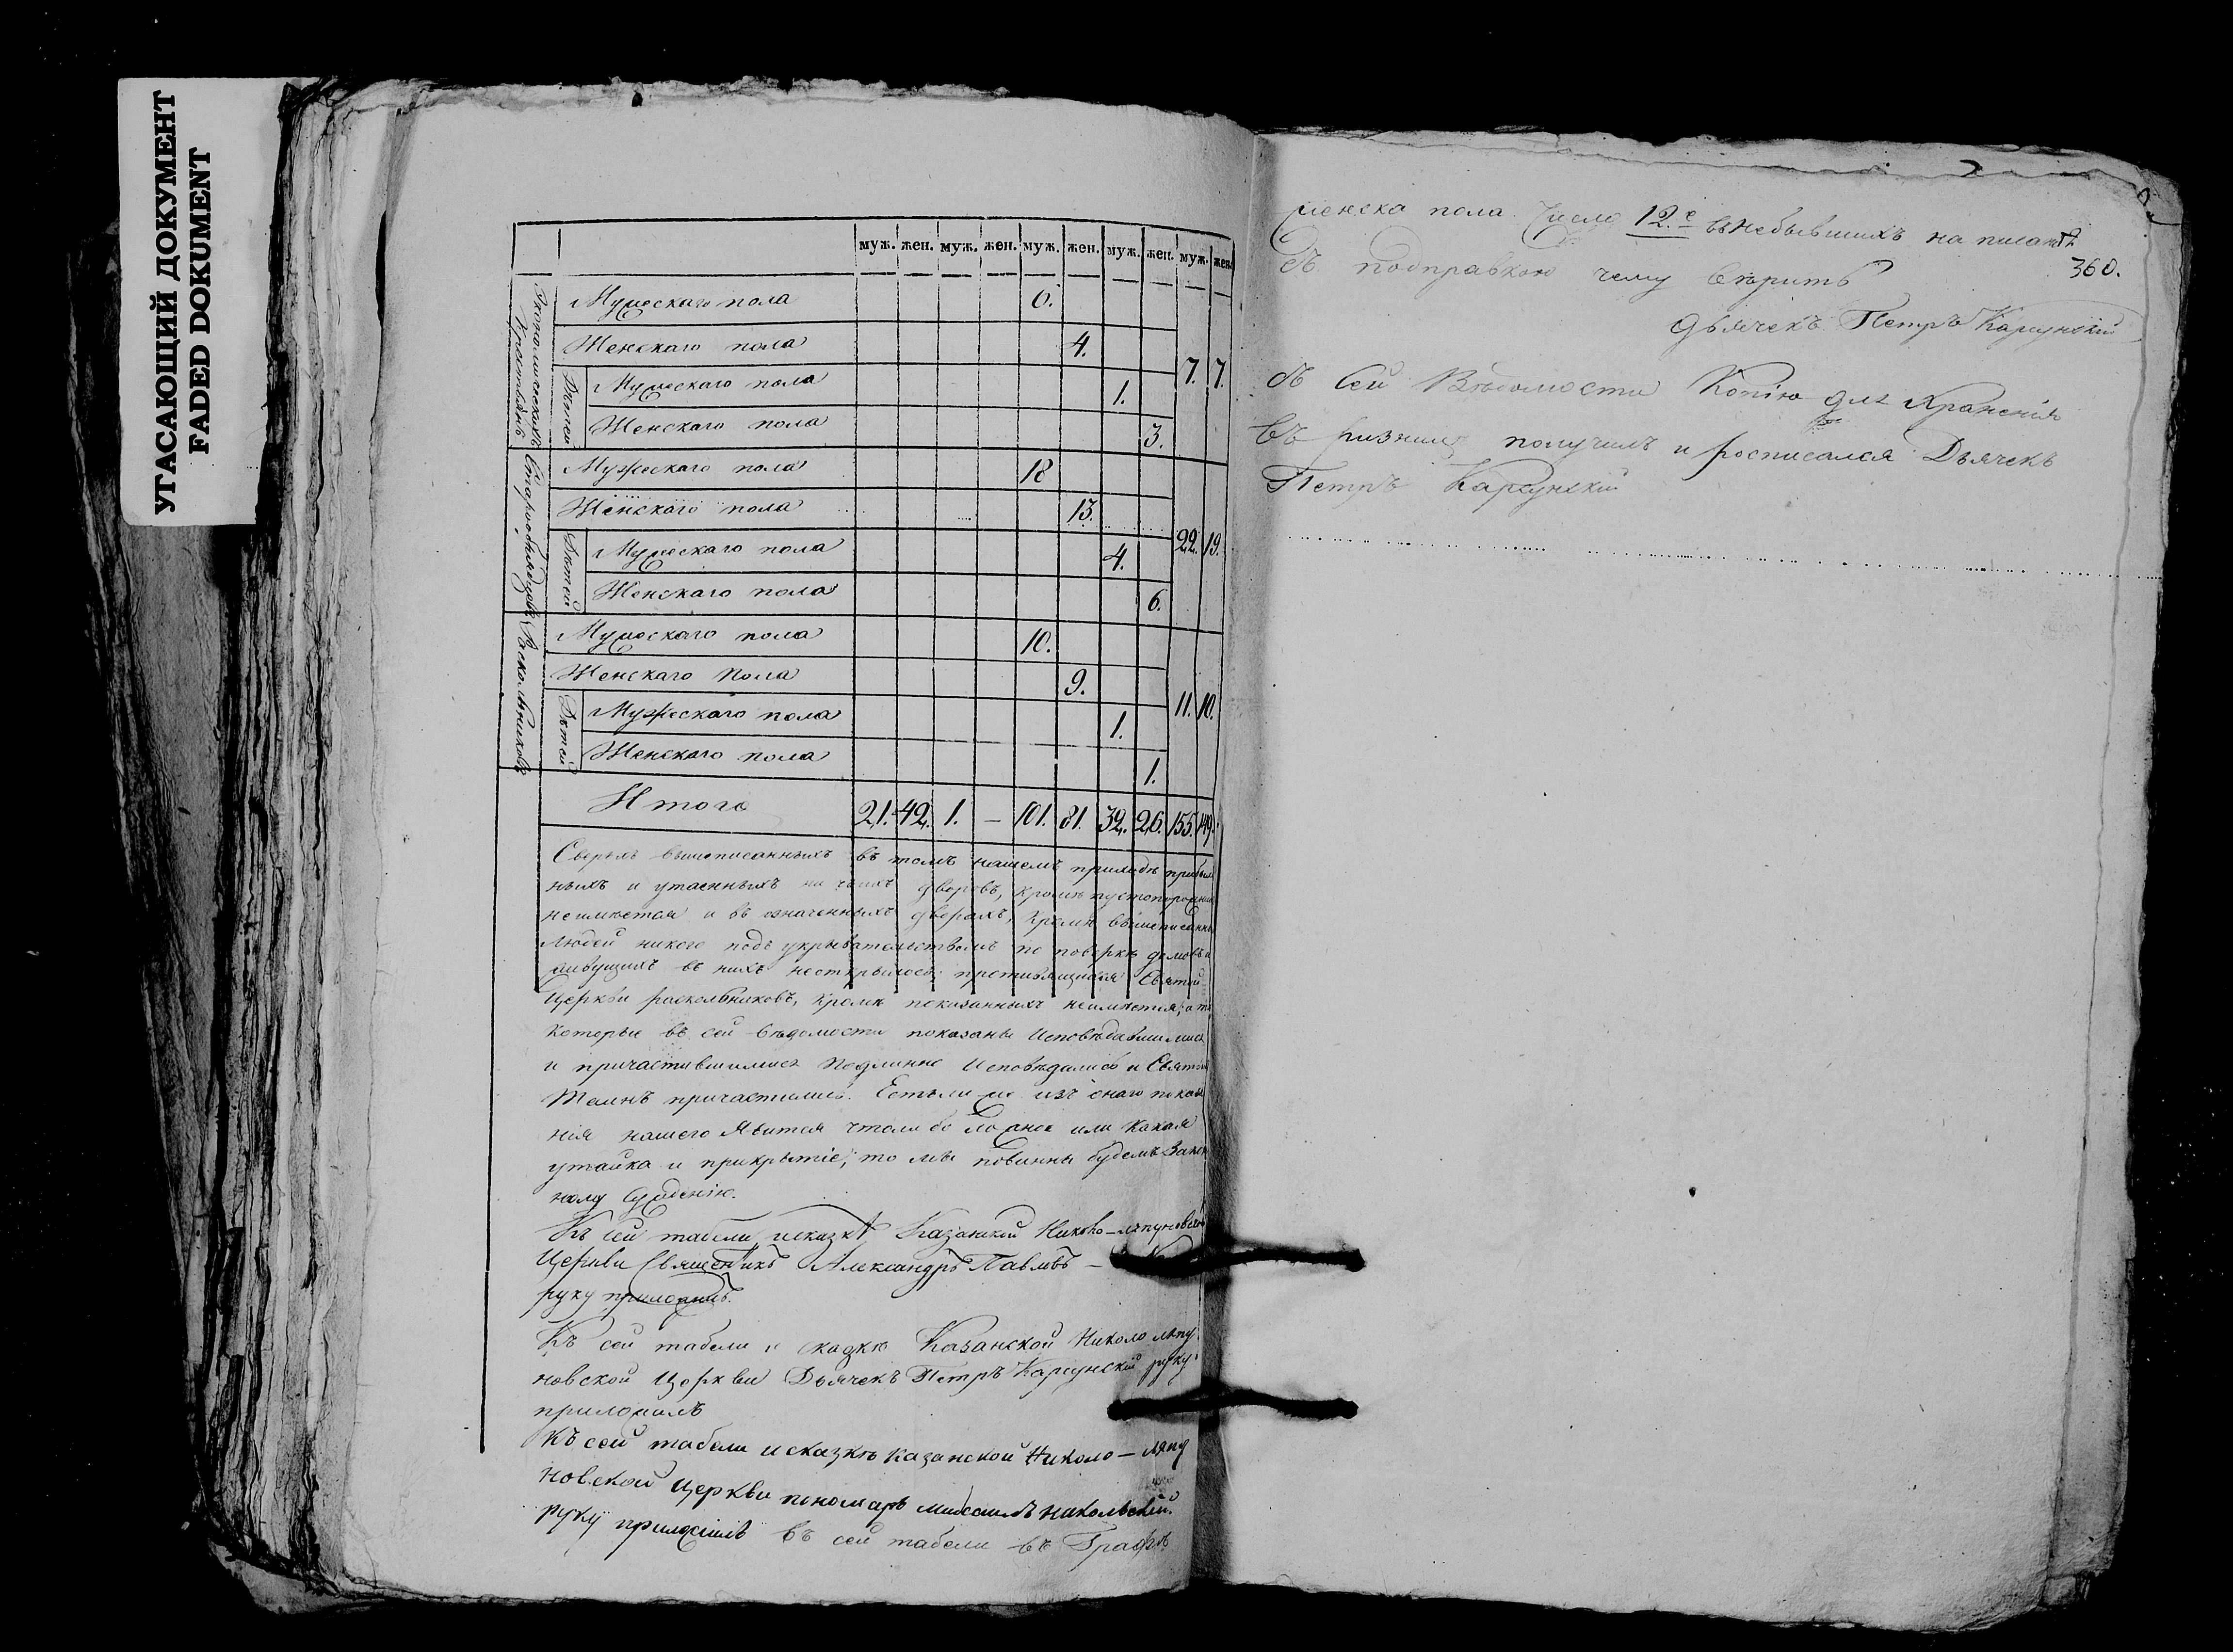 УГАСАЮЩИЙ ДОКУМЕНТ
FADED DOKUMENT
муж. жен. муж. жен. муж. жен. муж. жен. муж. жен.
Экономическихъ Крестьянъ
Мужескаго пола 6.
Женскаго пола 4.
7. 7.
Детей
Мужескаго пола 1.
Женскаго пола 3.
Мужескаго пола 18
Женскаго пола 13.
22. 19.
Детей
Мужескаго пола 4.
Женскаго пола 6.
Раскольниковъ
Мужескаго пола 10.
Женскаго Пола 9.
11. 10.
Детей
Мужескаго пола 1.
Женскаго пола 1.
Итого 21. 42. 1. – 101. 81. 32. 26. 155. 149.
Сверьхъ вышеписанныхъ въ томъ нашемъ приходѣ
ныхъ и утаенныхъ ни чьихъ дворовъ, кромѣ
неимѣется и въ означенныхъ дворахъ, кромѣ вышеписанны
людей никого подъ укрывательствомъ по поверкѣ домовъ и
живущихъ въ нихъ неоткрылось: противящихся Святой
Церкви раскольниковъ, кромѣ показанныхъ неимѣется; а тѣ
которые въ сей вѣдомости показаны Исповѣдавшимися
и причастившимися подлинно Исповѣдались и Святыхъ
Таинъ причастились. Естьли же изъ онаго показа
нія нашего Явится чтолибо ложное или какая
утайка и прикрытіе, то мы повинны будемъ Закон
ному Сужденію.
Къ сей табели и сказкѣ Казанской Николо-ляпуновской
Церкви Священникъ Александръ Павловъ –
руку приложилъ.
Къ сей табели и сказкѣ Казанской Николо ляпу
новской Церкви Дьячекъ Петръ Карсунскій руку
приложилъ
Къ сей табели и сказкѣ казанской Николо – ляпу
новской церкви пономарь михаилъ никольский
руку приложилъ въ сей табели въ Графѣ
женска пола Число 12.е въ небывшихъ на писано
360.
съ подправкою чему верить
дьячекъ Петръ Карсунскій
съ Сей Вѣдомости Копію для Храненія
въ ризницѣ получилъ и росписался Дьячекъ
Петръ Карсунскій